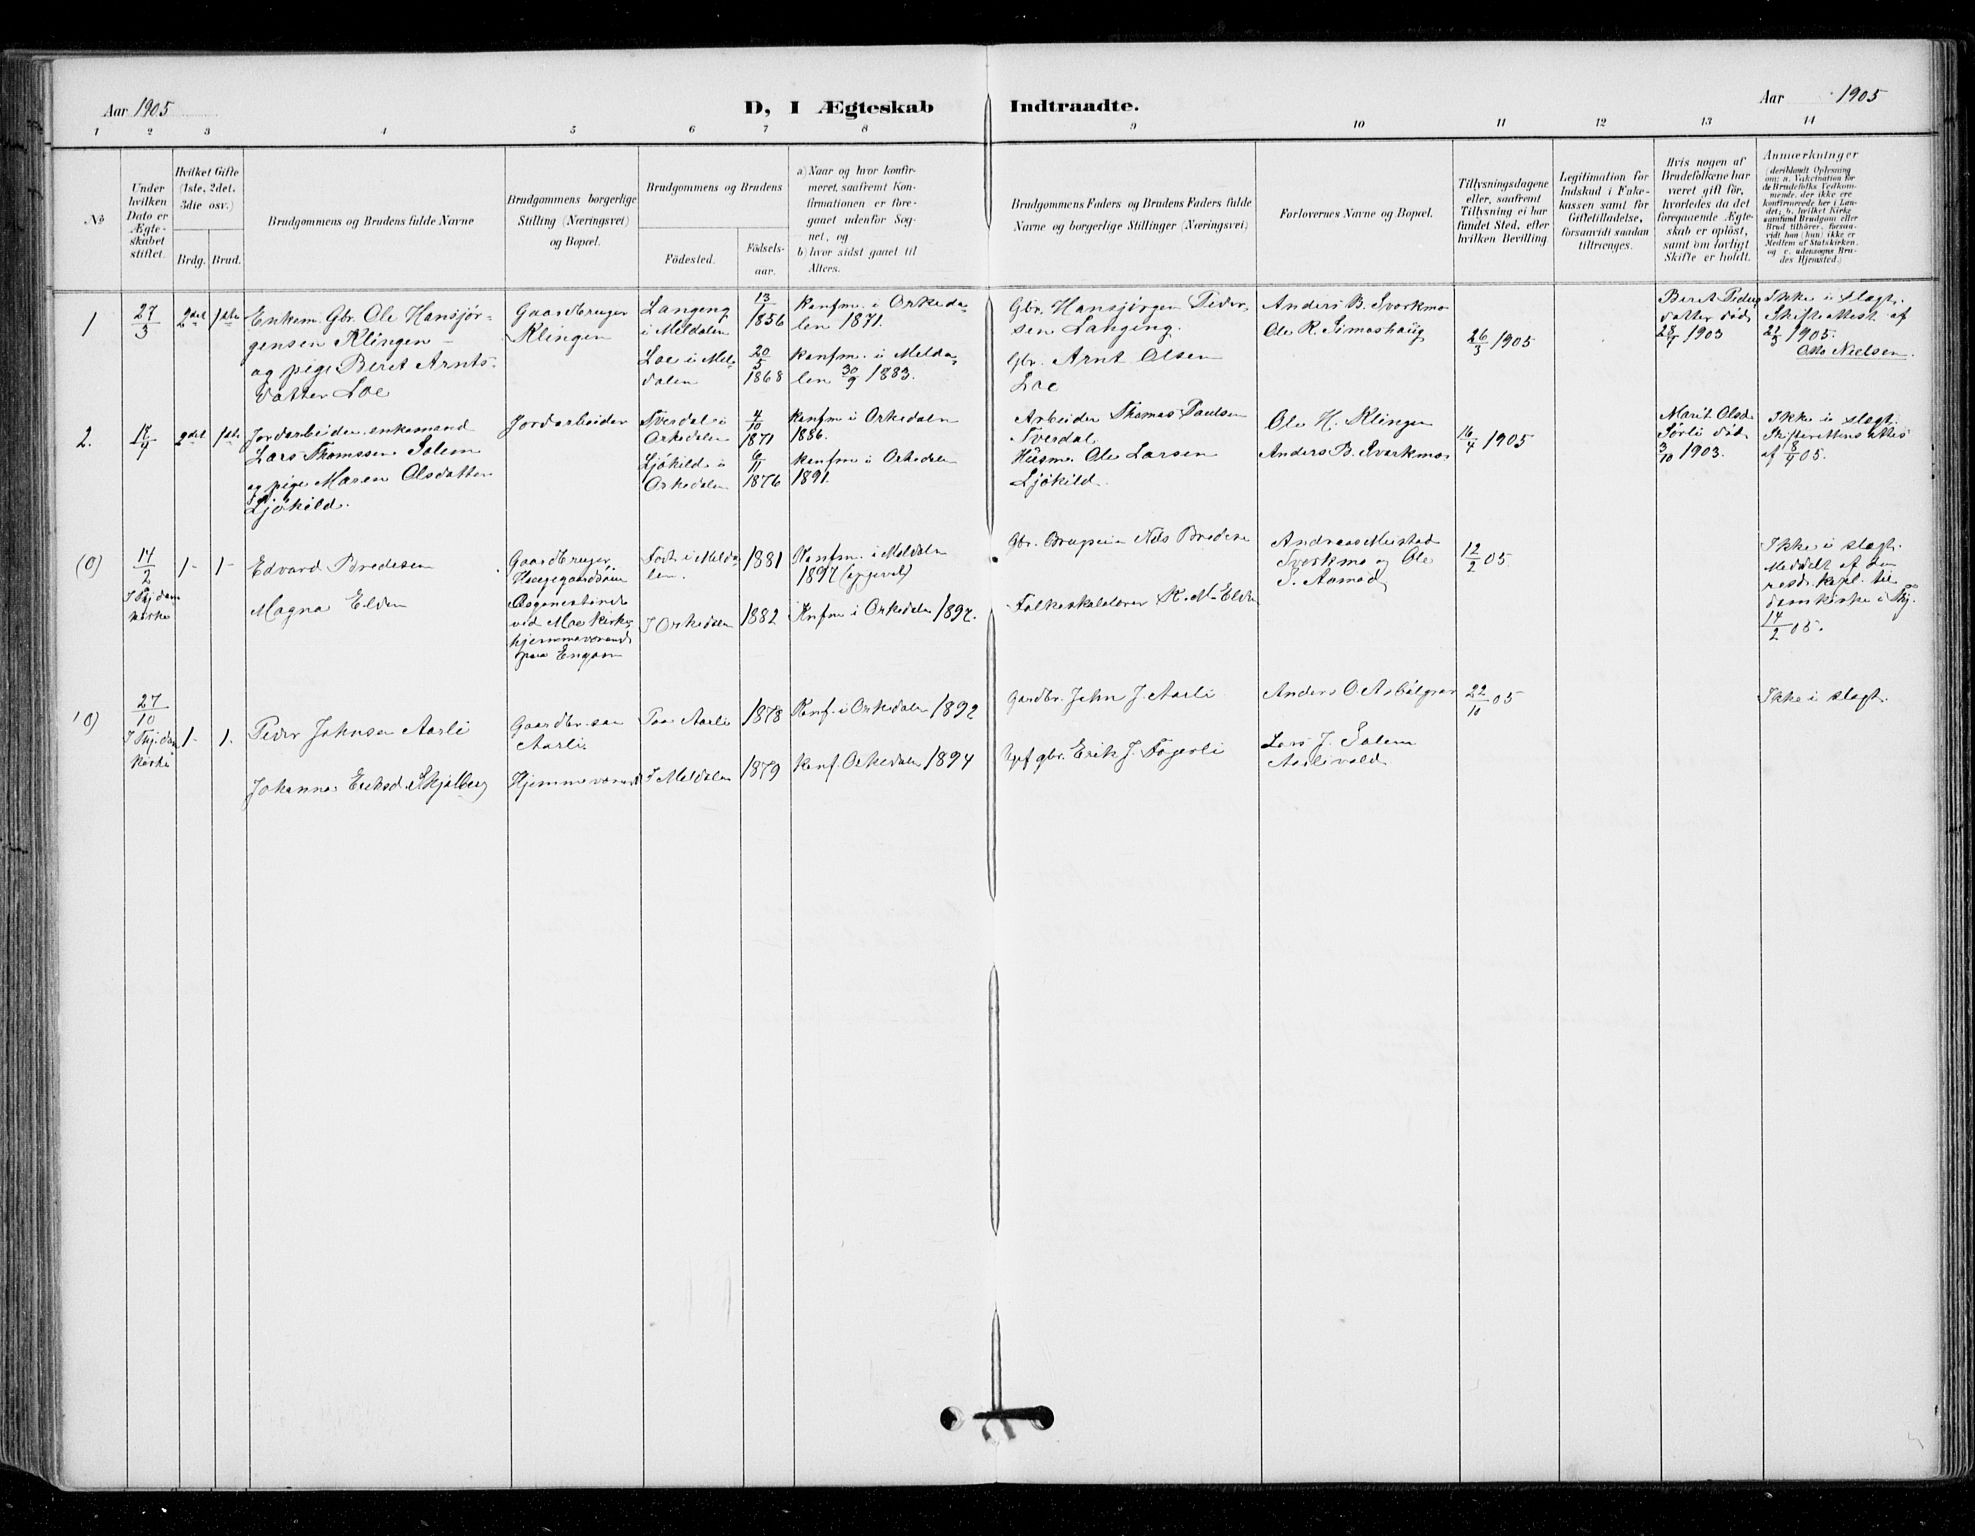 Aar 1905
D, I Ægteskab Indtraadte.
Aar 1905
1 2 3 4 5 6 7 8 9 10 11 12 13 14
No
Under hvilken Dato er Ægteskabet stiftet.
Hvilket Gifte (1ste, 2det, 3die osv.)
Brdg. Brud.
Brudgommens og Brudens fulde Navne
Brudgommens borgerlige Stilling (Næringsvei) og Bopæl.
Brudgommens og Brudens
Fødested.
Fødselsaar.
a) Naar og hvor konfirmeret, saafremt Konfirmationen er foregaaet udenfor Sognet, og
b) hvor sidst gaaet til Alters.
Brudgommens Faders og Brudens Faders fulde Navne og borgerlige Stillinger (Næringsvei)
Forlovernes Navne og Bopæl.
Tillysningsdagene eller, saafremt Tillysning ei har fundet Sted, efter hvilken Bevilling
Legitimation for Indskud i Enkekassen samt for Giftetilladelse, forsaavidt saadan tiltrænges.
Hvis nogen af Brudefolkene har været gift før, hvorledes da det foregaaende Ægteskab er opløst, samt om lovligt Skifte er holdt.
Anmærkninger (deriblandt Oplysning om: a. Vakcination for de Brudefolks Vedkommende, der ikke ere konfirmerede her i Landet; b. hvilket Kirkesamfund Brudgom eller Brud tilhører, forsaavidt han (hun) ikke er Medlem af Statskirken, og c. udensogns Brudes Hjemsted.)
1
27/3
2det 1ste
Enkem. Gbr. Ole Hansjør-
gensen Klingen -
og pige Beret Arnts-
datter Loe
Gaardbruger
Klingen
Langeng
i Meldalen
Loe i Mel-
dalen
13/3 1856
20/5 1868
konfm. i Orkeda-
len 1871.
konfm. i Melda-
len 30/9 1883.
Gbr. Hansjørgen Peder-
sen Langeng.
Gbr. Arnt Olsen
Loe
Anders B. Svorkmo
Ole R. Simoshaug
26/3 1905
Beret Peders
datter død
28/7 1903
Ikke i slægt.
Skifteattest af
22/3 1905.
Oslo Nielsen.
2.
18/4
2det 1ste
Jordarbeider enkemand
Lars Thomssen Solem
og pige Maren Olsdatter
Ljøkild.
Jordarbeider
Sverdal i
Orkedalen
Ljøkild i
Orkedalen
4/10 1871
6/11 1876
konfm i Orkedalen
1886.
konfm i Orkedalen
1891.
Arbeider Thomas Paulsen
Sverdal
Husm. Ole Larsen
Ljökild.
Ole H. Klingen
Anders B. Svorkmo
16/4 1905
Marit Olsd.
Sørli død
3/10 1903.
Ikke i slægt.
Skifterettens attest
af 8/4 05.
(0)
14/2
I Thj. dom
kirke
1- 1-
Edvard Bredesen
Magna Elden
Gaardbruger,
vid Moe kirke,
hjemmeværende
paa Engan
Født i Melda-
len.
I Orkedalen
1881
1882
Konfm. i Meldalen
1897 (opgivet)
Knfm i Orkedalen 1897.
Gbr. Nils Bredesen
Folkeskolelærer K. M. Elden
Andreas Meistad
Svorkmo og Ole
S. Aamod
12/2 05
Ikke i slægt.
Meddelt af den
resid. kapl. til
domkirke i Thj.
14/2 05.
(0)
27/10
I Thj. dom
kirke
1- 1.
Peder Johnsen Aarli
Johanna Eriksd. Skjølberg
Gaardbr. søn
Aarli.
Hjemmeværende
Paa Aarli
I Meldalen
1878
1879
Konf. i Orkedalen 1892
konf. Orkedalen 1894
Gaardbr. John J. Aarli
gbr. Erik J. Fagerli
Anders O. Asbølgrav
Lars J. Solem
Aarlivold
22/10 05
Ikke i slægt.